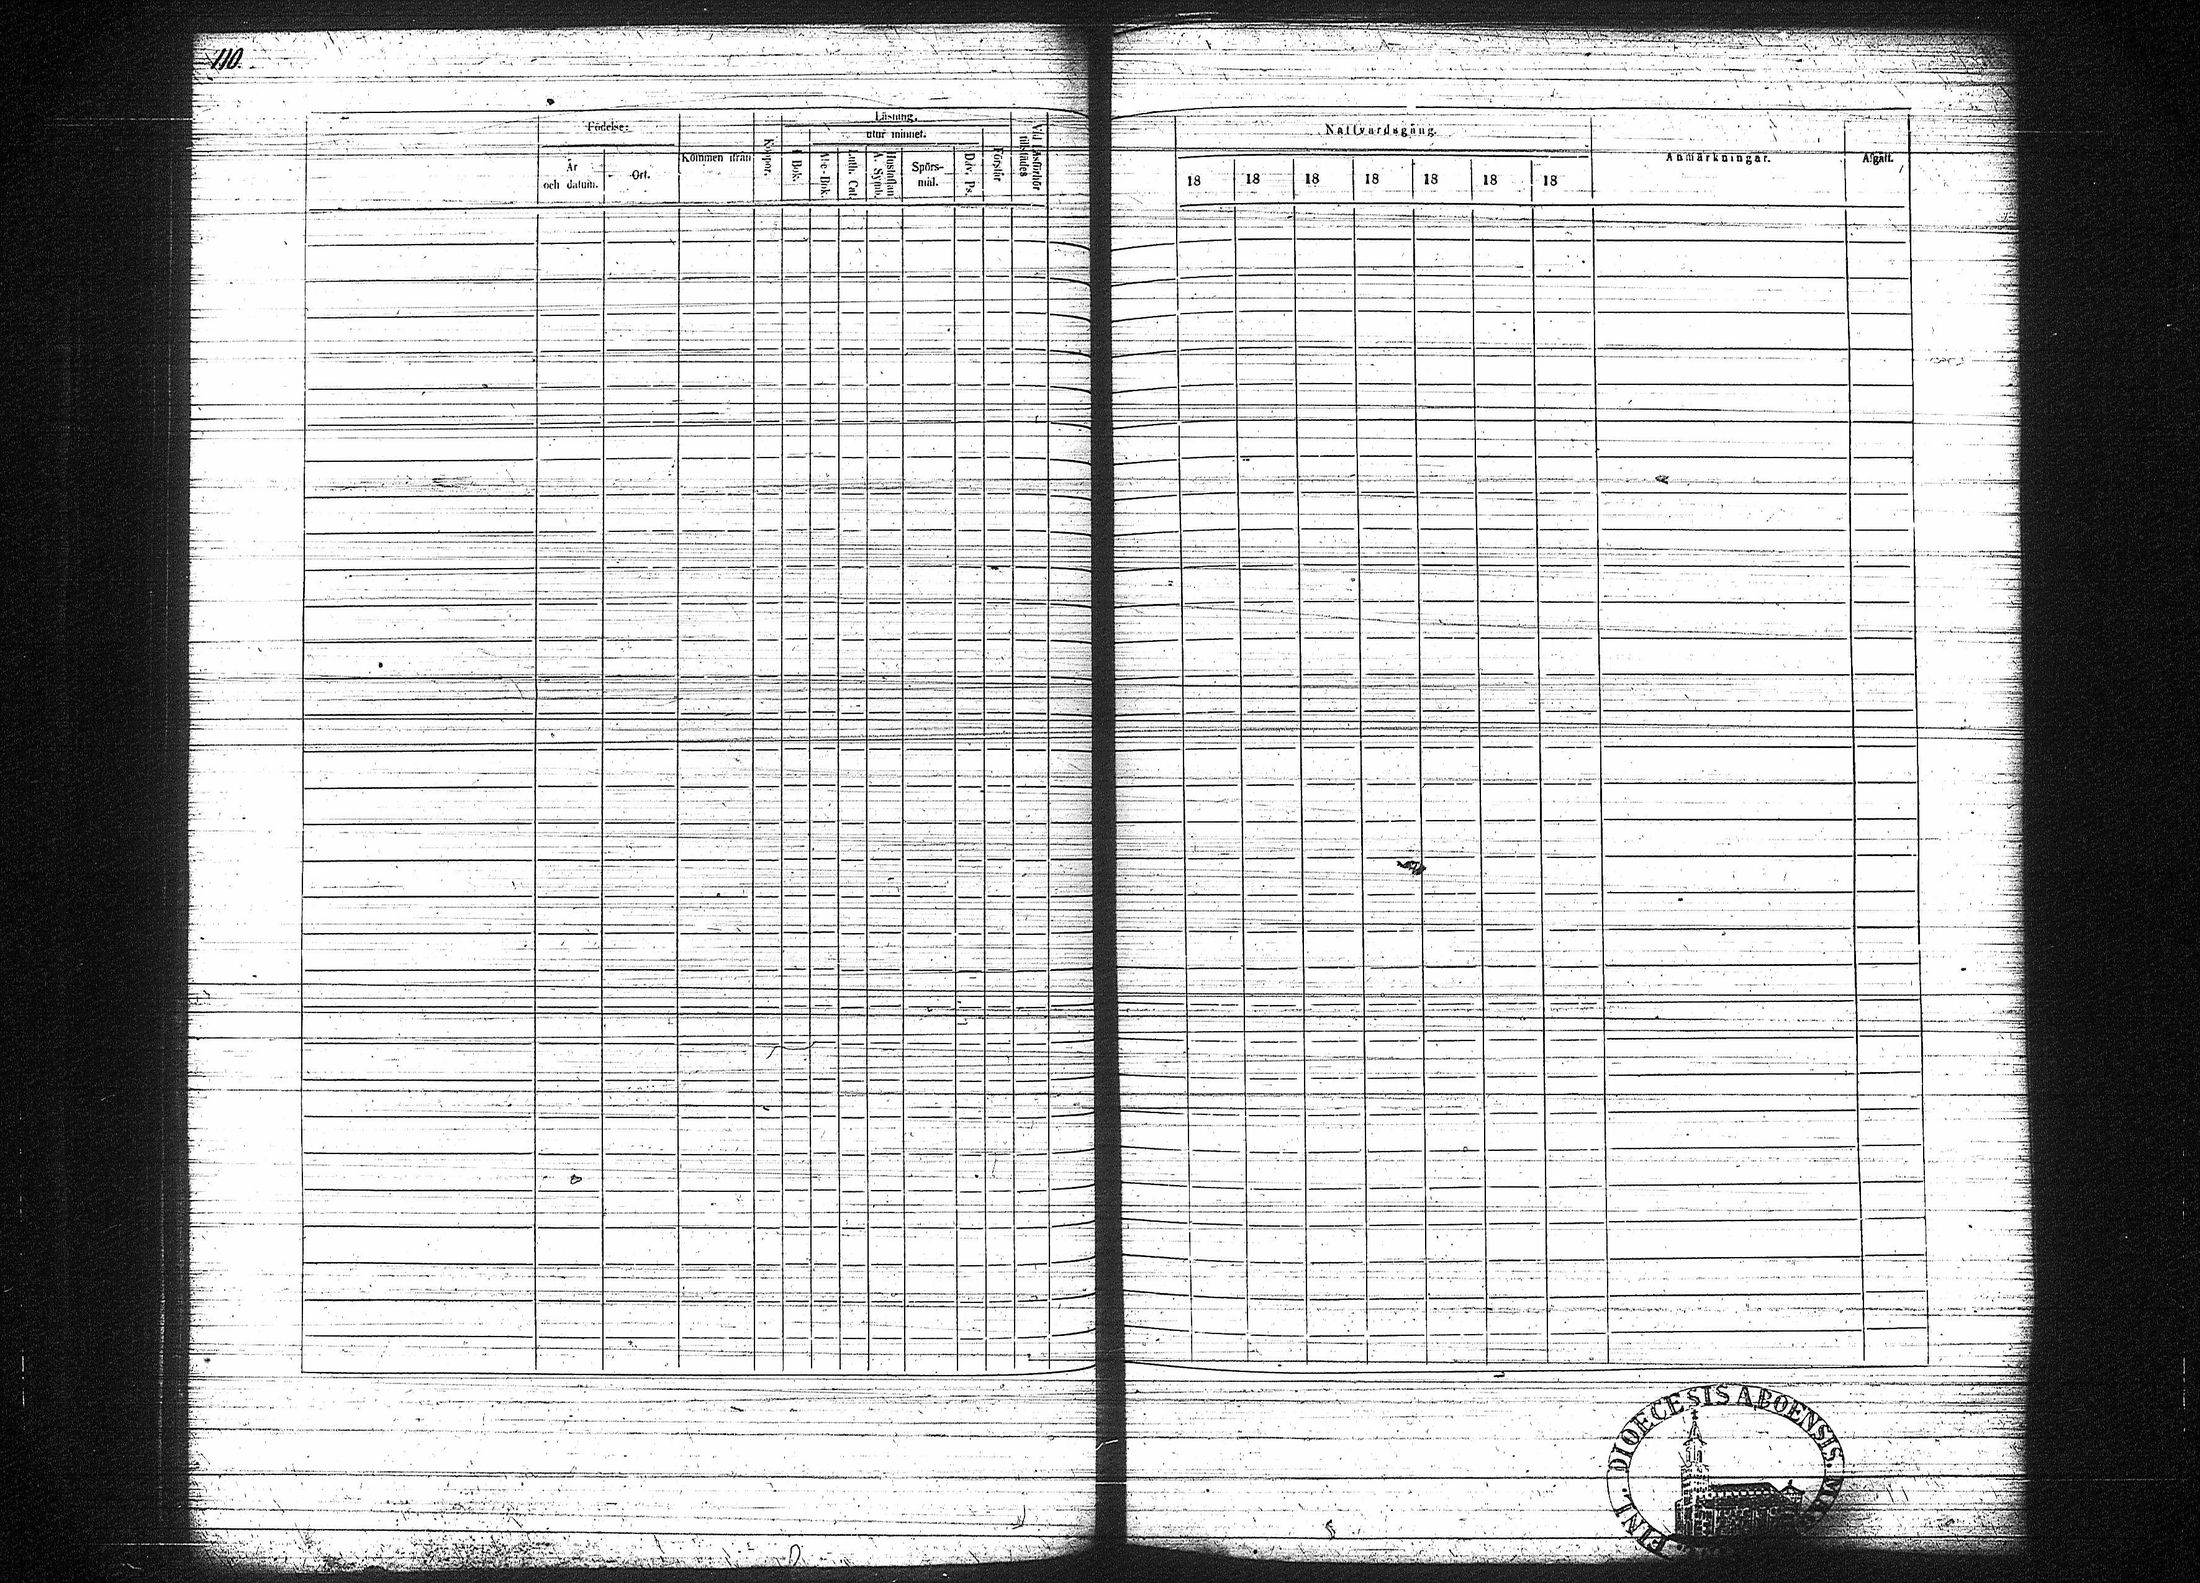 110.
Födelse:
År
och datum.
Ort.
Kommen ifrån
Koppor.
Läsning.
utur minnet.
I Bok.
Abc-Bok.
Luth. Cat.
Hustaflan
A. Symb.
Spörs-
mål.
Dav. Ps.
Förstår
Vid Läsförhör
tillstädes
Nattvardsgång.
18 18 18 18 18 18 18
Anmärkningar.
Afgått.
FINL. DIOECESIS ABOENSIS.